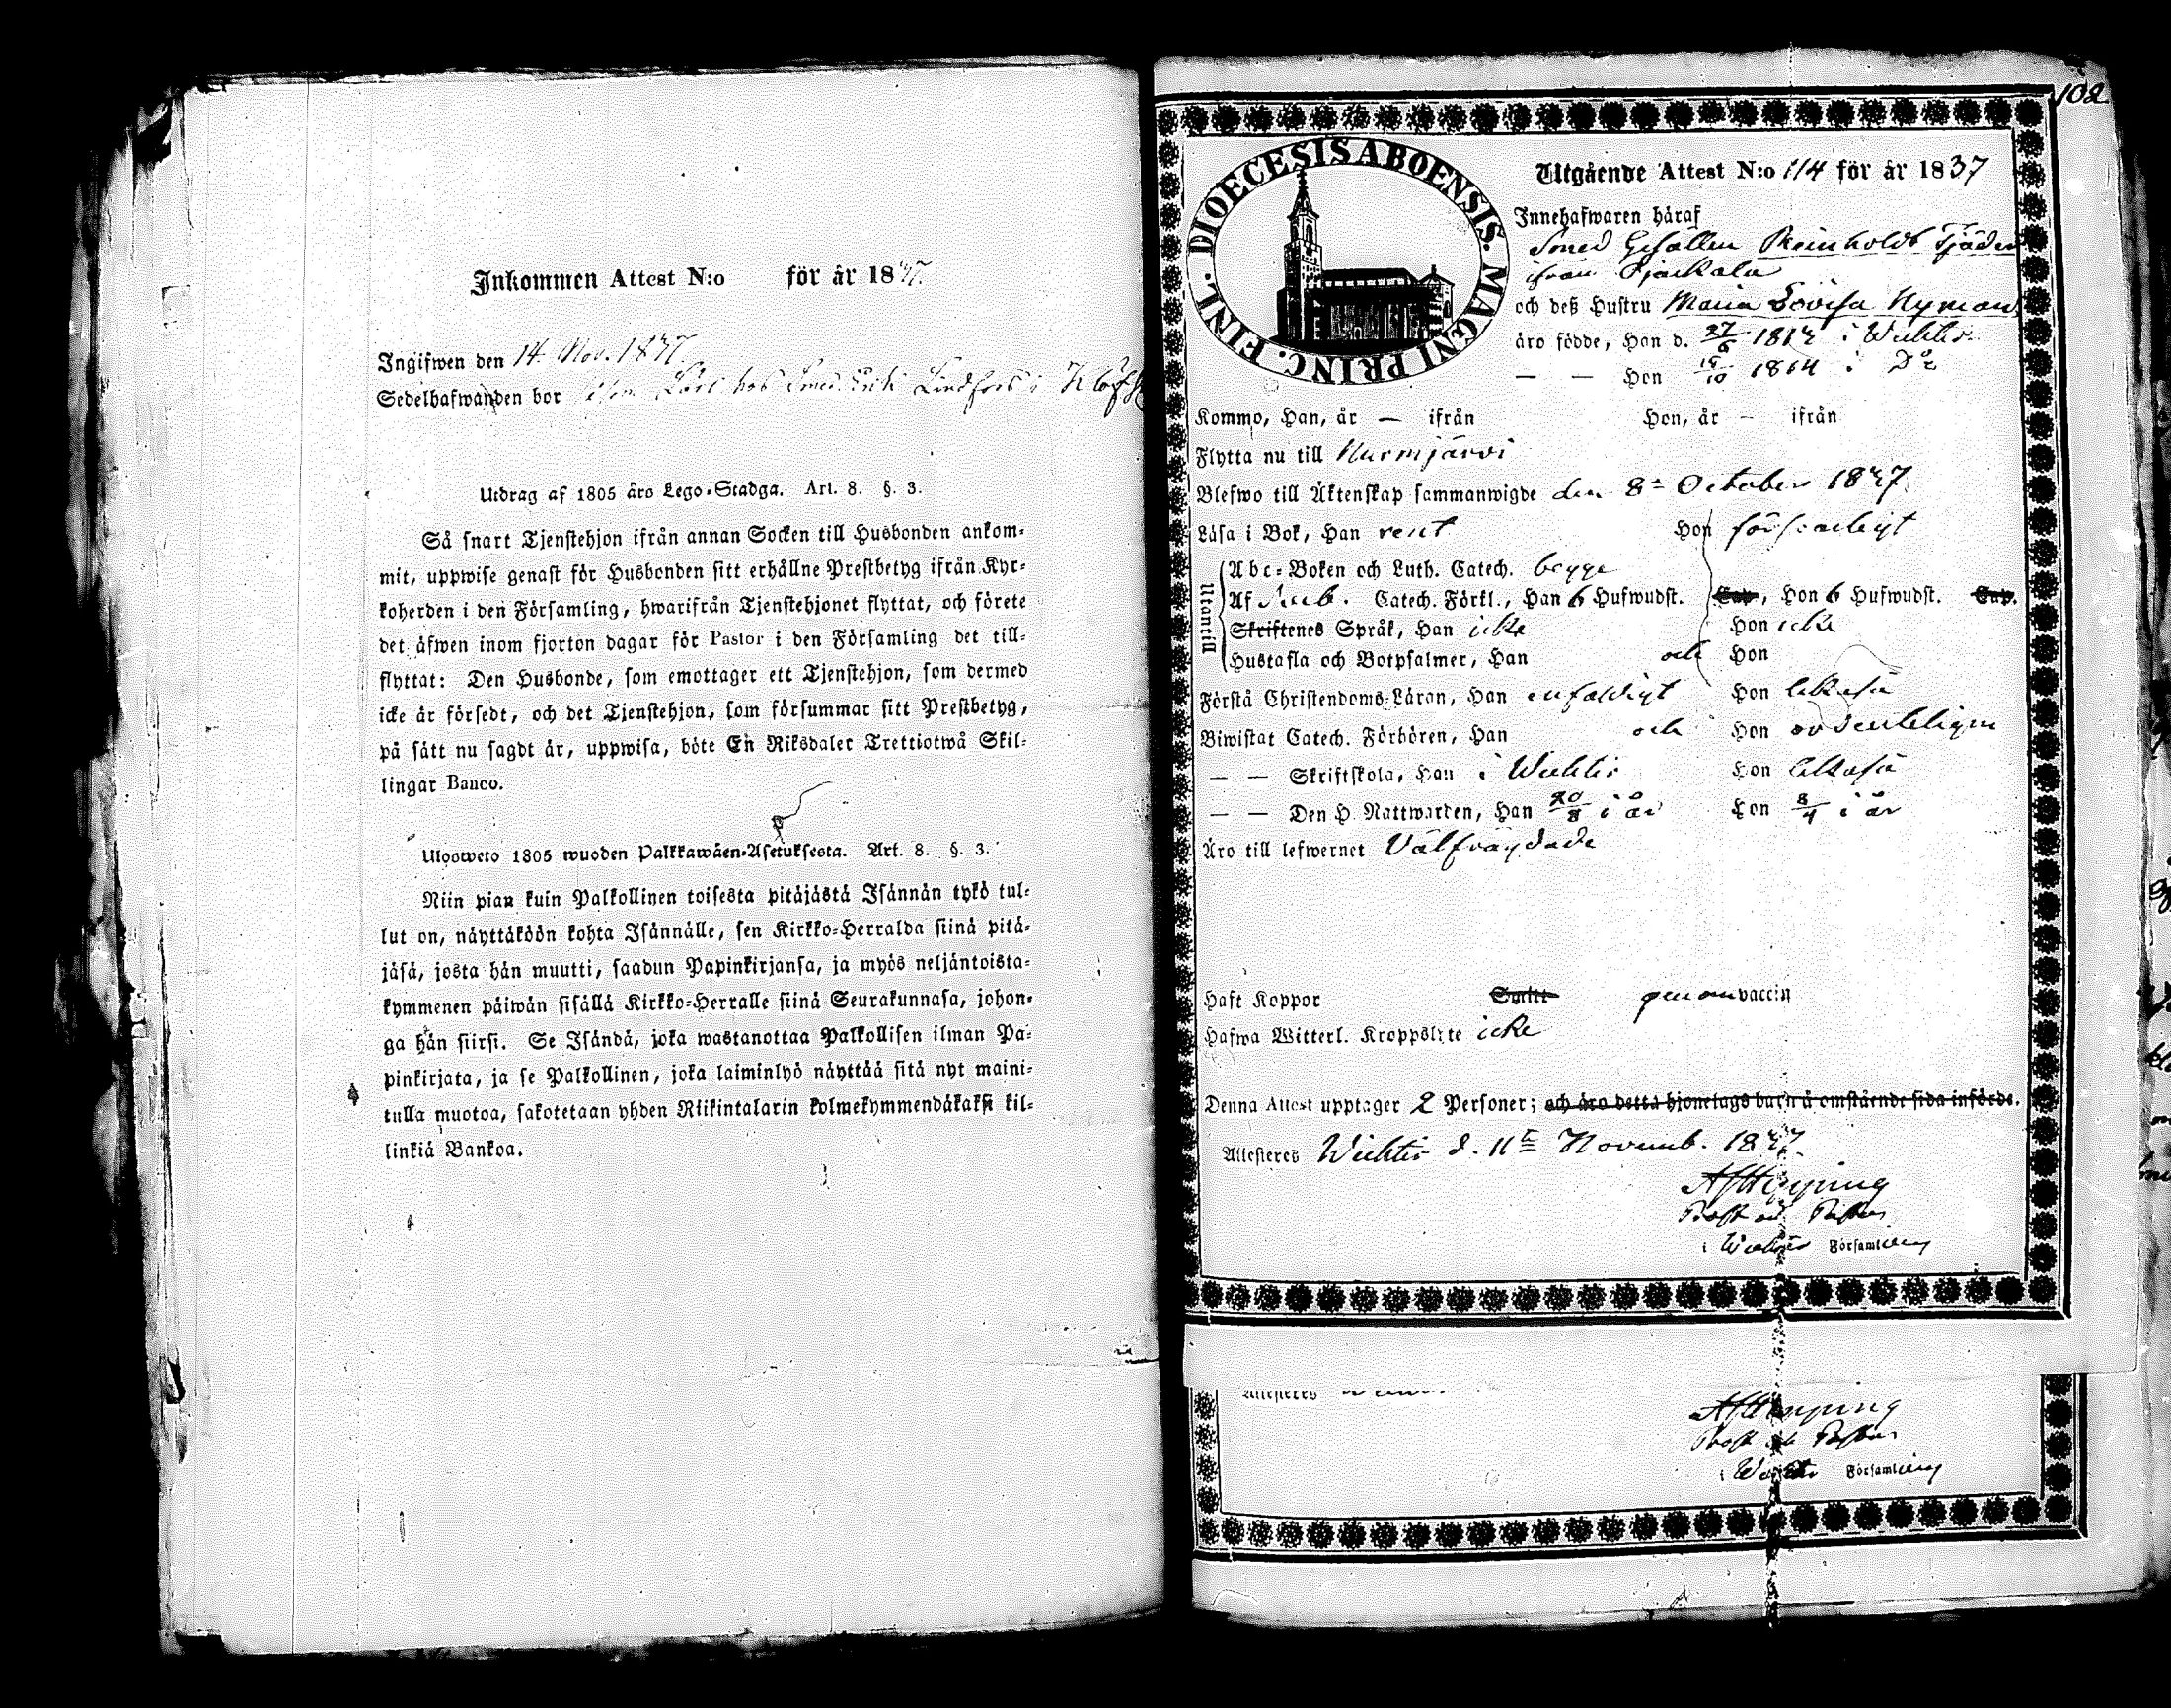 Inkommen Attest N:o för år 1837.
Ingifwen den 14 Nov. 1837.
Sedelhafwanden bor hos Smed Lindfors i
Utdrag af 1805 åro Lego-Stadga. Art. 8. §. 3.
Så snart Tjenstehjon ifrån annan Socken till Husbonden ankom-
mit, uppwise genast för Husbonden sitt erhållne Prestbetyg ifrån Kyr-
koherden i den Församling, hwarifrån Tjenstehjonet flyttat, och förete
det åfwen inom fjorton dagar för Pastor i den Församling det till-
flyttat: Den Husbonde, som emottager ett Tjenstehjon, som dermed
icke år försedt, och det Tjenstehjon, som försummar sitt Prestbetyg,
på sått nu sagdt år, uppwisa, böte En Riksdaler Trettiotwå Skil-
lingar Banco.
Ulosweto 1805 wuoden Palkkawåen-Asetuksesta. Art. 8. §. 3.
Niin pian kuin Palkollinen toisesta pitåjåstå Isånnån tykö tul-
lut on, nåyttåköön kohta Isånnålle, sen Kirkko-Herralda siinå pitå-
jåså, josta hån muutti, saadun Papinkirjansa, ja myös neljåntoista-
kymmenen påiwån sisållå Kirkko-Herralle siinå Seurakunnasa, johon-
ga hån siirsi. Se Isåndå, joka wastanottaa Palkollisen ilman Pa-
pinkirjata, ja se Palkollinen, joka laiminlyö nåyttåå sitå nyt maini-
tulla muotoa, sakotetaan yhden Riikintalarin kolmekymmendåkaksi kil-
linkiå Bankoa.
102
DIOECESIS ABOENSIS. MAGNI PRINC. FINL.
Utgående Attest N:o 114 för år 1837
Innehafwaren håraf
Smed Gesällen Reinholdt Tjäder
ifrån Ojakkala
och deß Hustru Maria Lovisa Nyman
åro födde, Han d. 27/6 1812 i Wichtis
— — Hon 15/10 1814 i D:o
Kommo, Han, år — ifrån Hon, år — ifrån
Flytta nu till Nurmijärvi
Blefwo till Åktenskap sammanwigde den 8 October 1837
Låsa i Bok, Han rent Hon försvarligt
Utantill
Abc-Boken och Luth. Catech. begge
Af Catech. Förkl., Han 6 Hufwudst. Cap., Hon 6 Hufwudst. Cap.
Skriftenes Språk, Han icke Hon icke
Hustafla och Botpsalmer, Han och Hon
Förstå Christendoms-Låran, Han enfaldigt Hon likaså
Biwistat Catech. Förhören, Han och Hon ordenteligen
— — Skriftskola, Han i Wichtis Hon likaså
— — Den H. Nattwarden, Han 20/8 i år Hon 8/4 i år
Åro till lefwernet Välfräjdade
Haft Koppor Smitt genom vaccin
Hafwa Witterl. Kroppslyte icke
Denna Attest upptager 2 Personer; och åro detta hjonelags barn å omstående sida införde.
Attesteres Wichtis d. 11 Novemb. 1837
Prost och Pastor
i Wichtis Församling
Attesteres
Prost och Pastor
i Församling